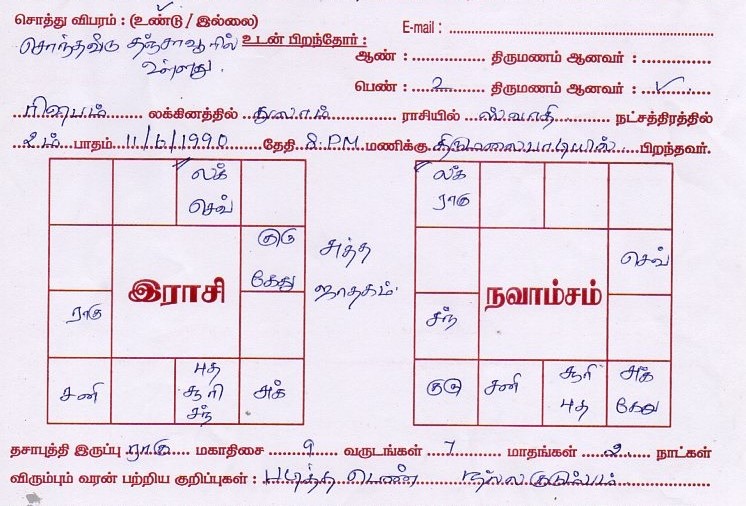 சொத்து விபரம் : (உண்டு / இல்லை)
E-mail :
சொந்தவீடு தஞ்சாவூரில் உள்ளது.
உடன் பிறந்தோர் :
ஆண் : திருமணம் ஆனவர் :
பெண் : 2 திருமணம் ஆனவர் : ✓
ரிஷபம் லக்கினத்தில் துலாம் ராசியில் ஸ்வாதி நட்சத்திரத்தில்
2ம் பாதம் தேதி 8. PM மணிக்கு திருமலைபாடியில் பிறந்தவர்.
லக்
செவ்
குரு
கேது
ராகு
இராசி
சனி
புத
சூரி
சந்
சுக்
சுத்த
ஜாதகம்
லக்
ராகு
செவ்
நவாம்சம்
சந்
குரு
சனி
சூரி
புத
சுக்
கேது
தசாபுத்தி இருப்பு ராகு மகாதிசை 9 வருடங்கள் 7 மாதங்கள் 2 நாட்கள்
விரும்பும் வரன் பற்றிய குறிப்புகள் : படித்த பெண் நல்ல குடும்பம்